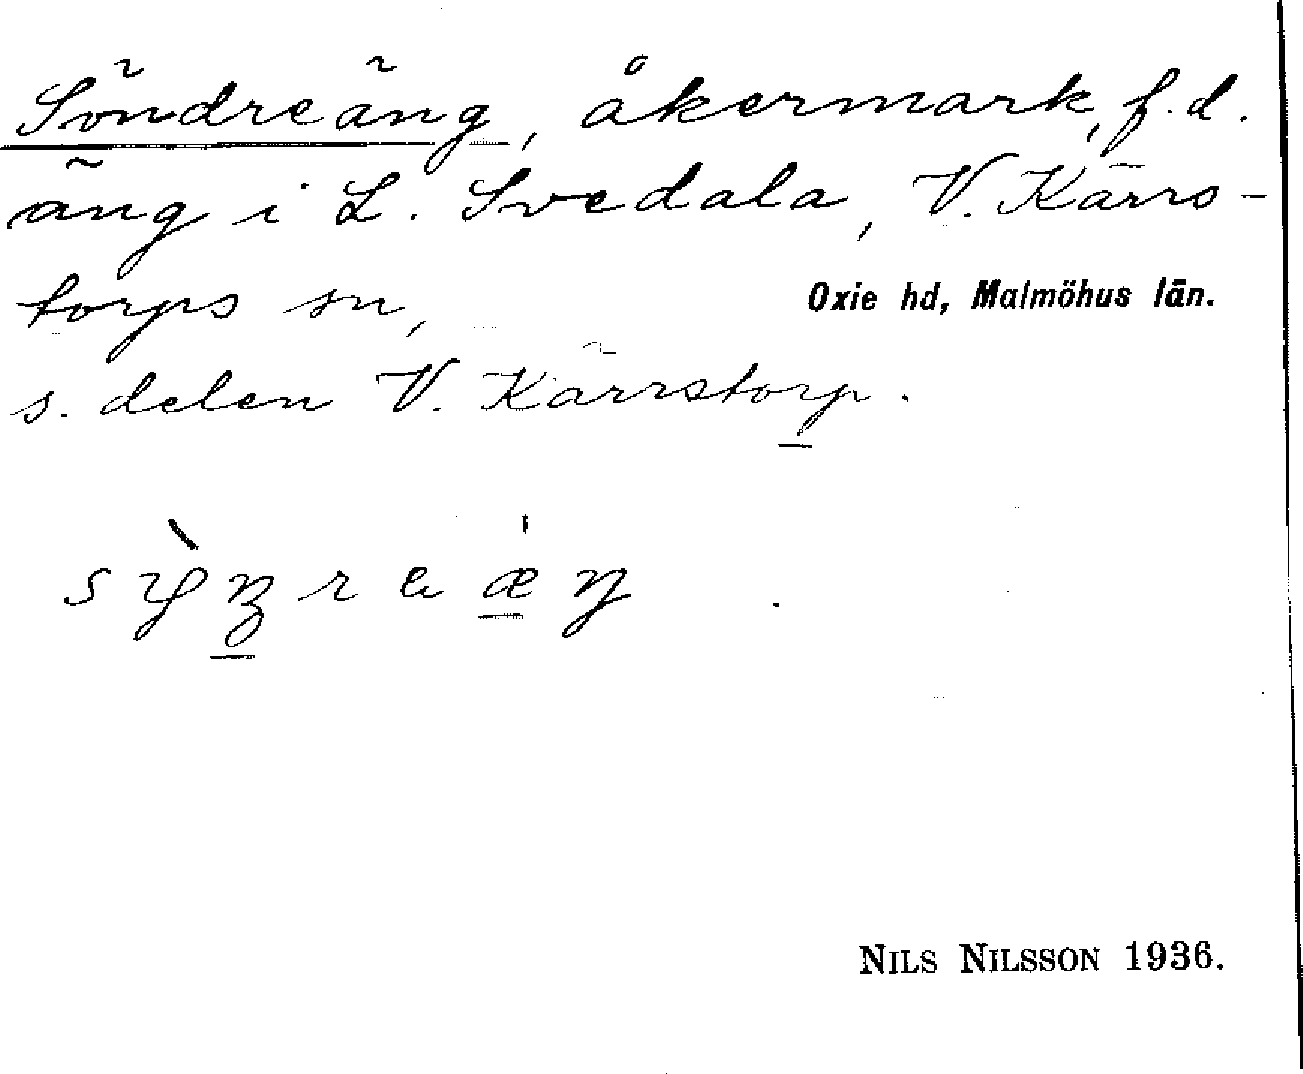 Söndreäng, åkermark, f.d.
äng i L. Svedala, V. Kärrs-
torps sn,
Oxie hd, Malmöhus län.
s. delen V. Kärrstorp.
NILS NILSSON 1936.